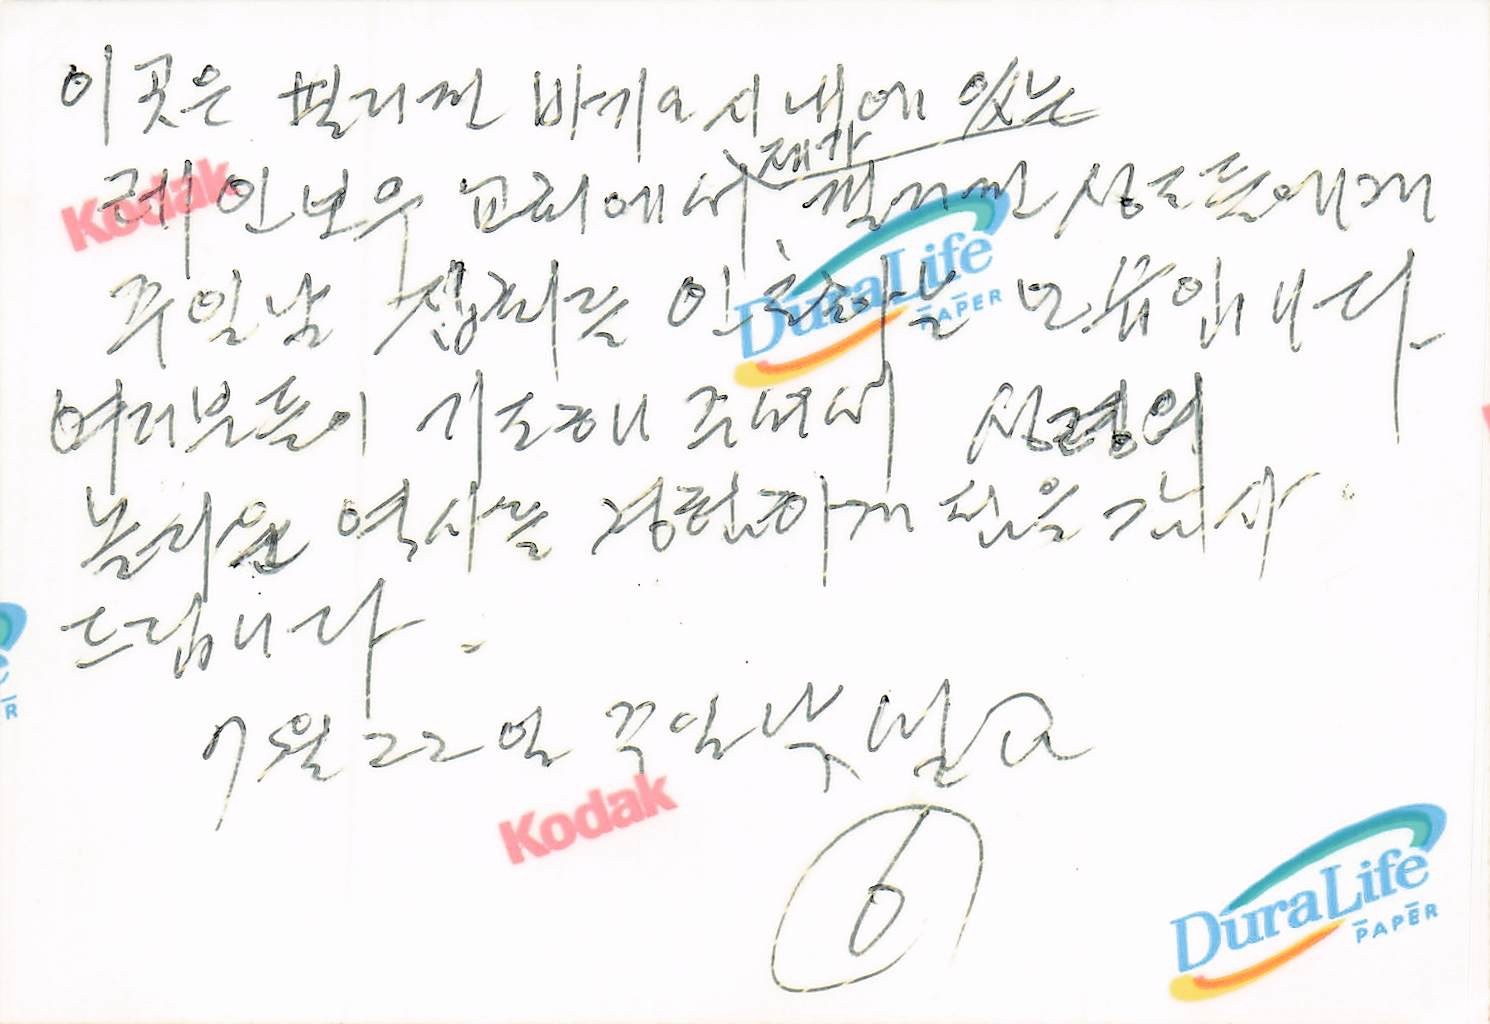 이곳은 필리핀 바기오 시내에 있는
레인보우 교회에서 제가 필리핀 성도들에게
주일낮 집회를 인도하는 모습입니다
여러분들이 기도해 주셔서 성령의
놀라운 역사를 경험하게 됨을 감사
드립니다.
7월 22일 주일낮 설교
6
Kodak
DuraLife
PAPER
Kodak
DuraLife
PAPER